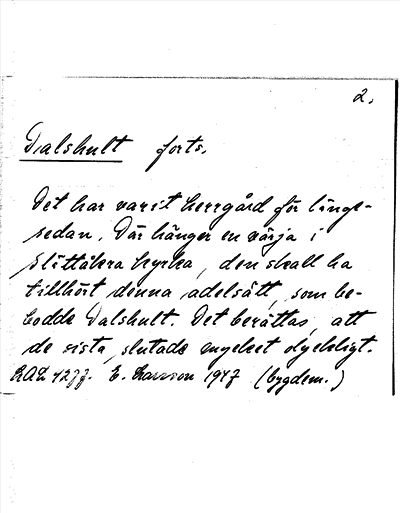 2.
Dalshult forts.
Det har varit herrgård för länge-
sedan. Där hänger en värja i
Slättåkra kyrka, den skall ha
tillhört denna adelsätt, som be-
bodde Dalshult. Det berättas, att
de sista slutade mycket olyckligt.
E. Larsson 1947 (bygdem.)